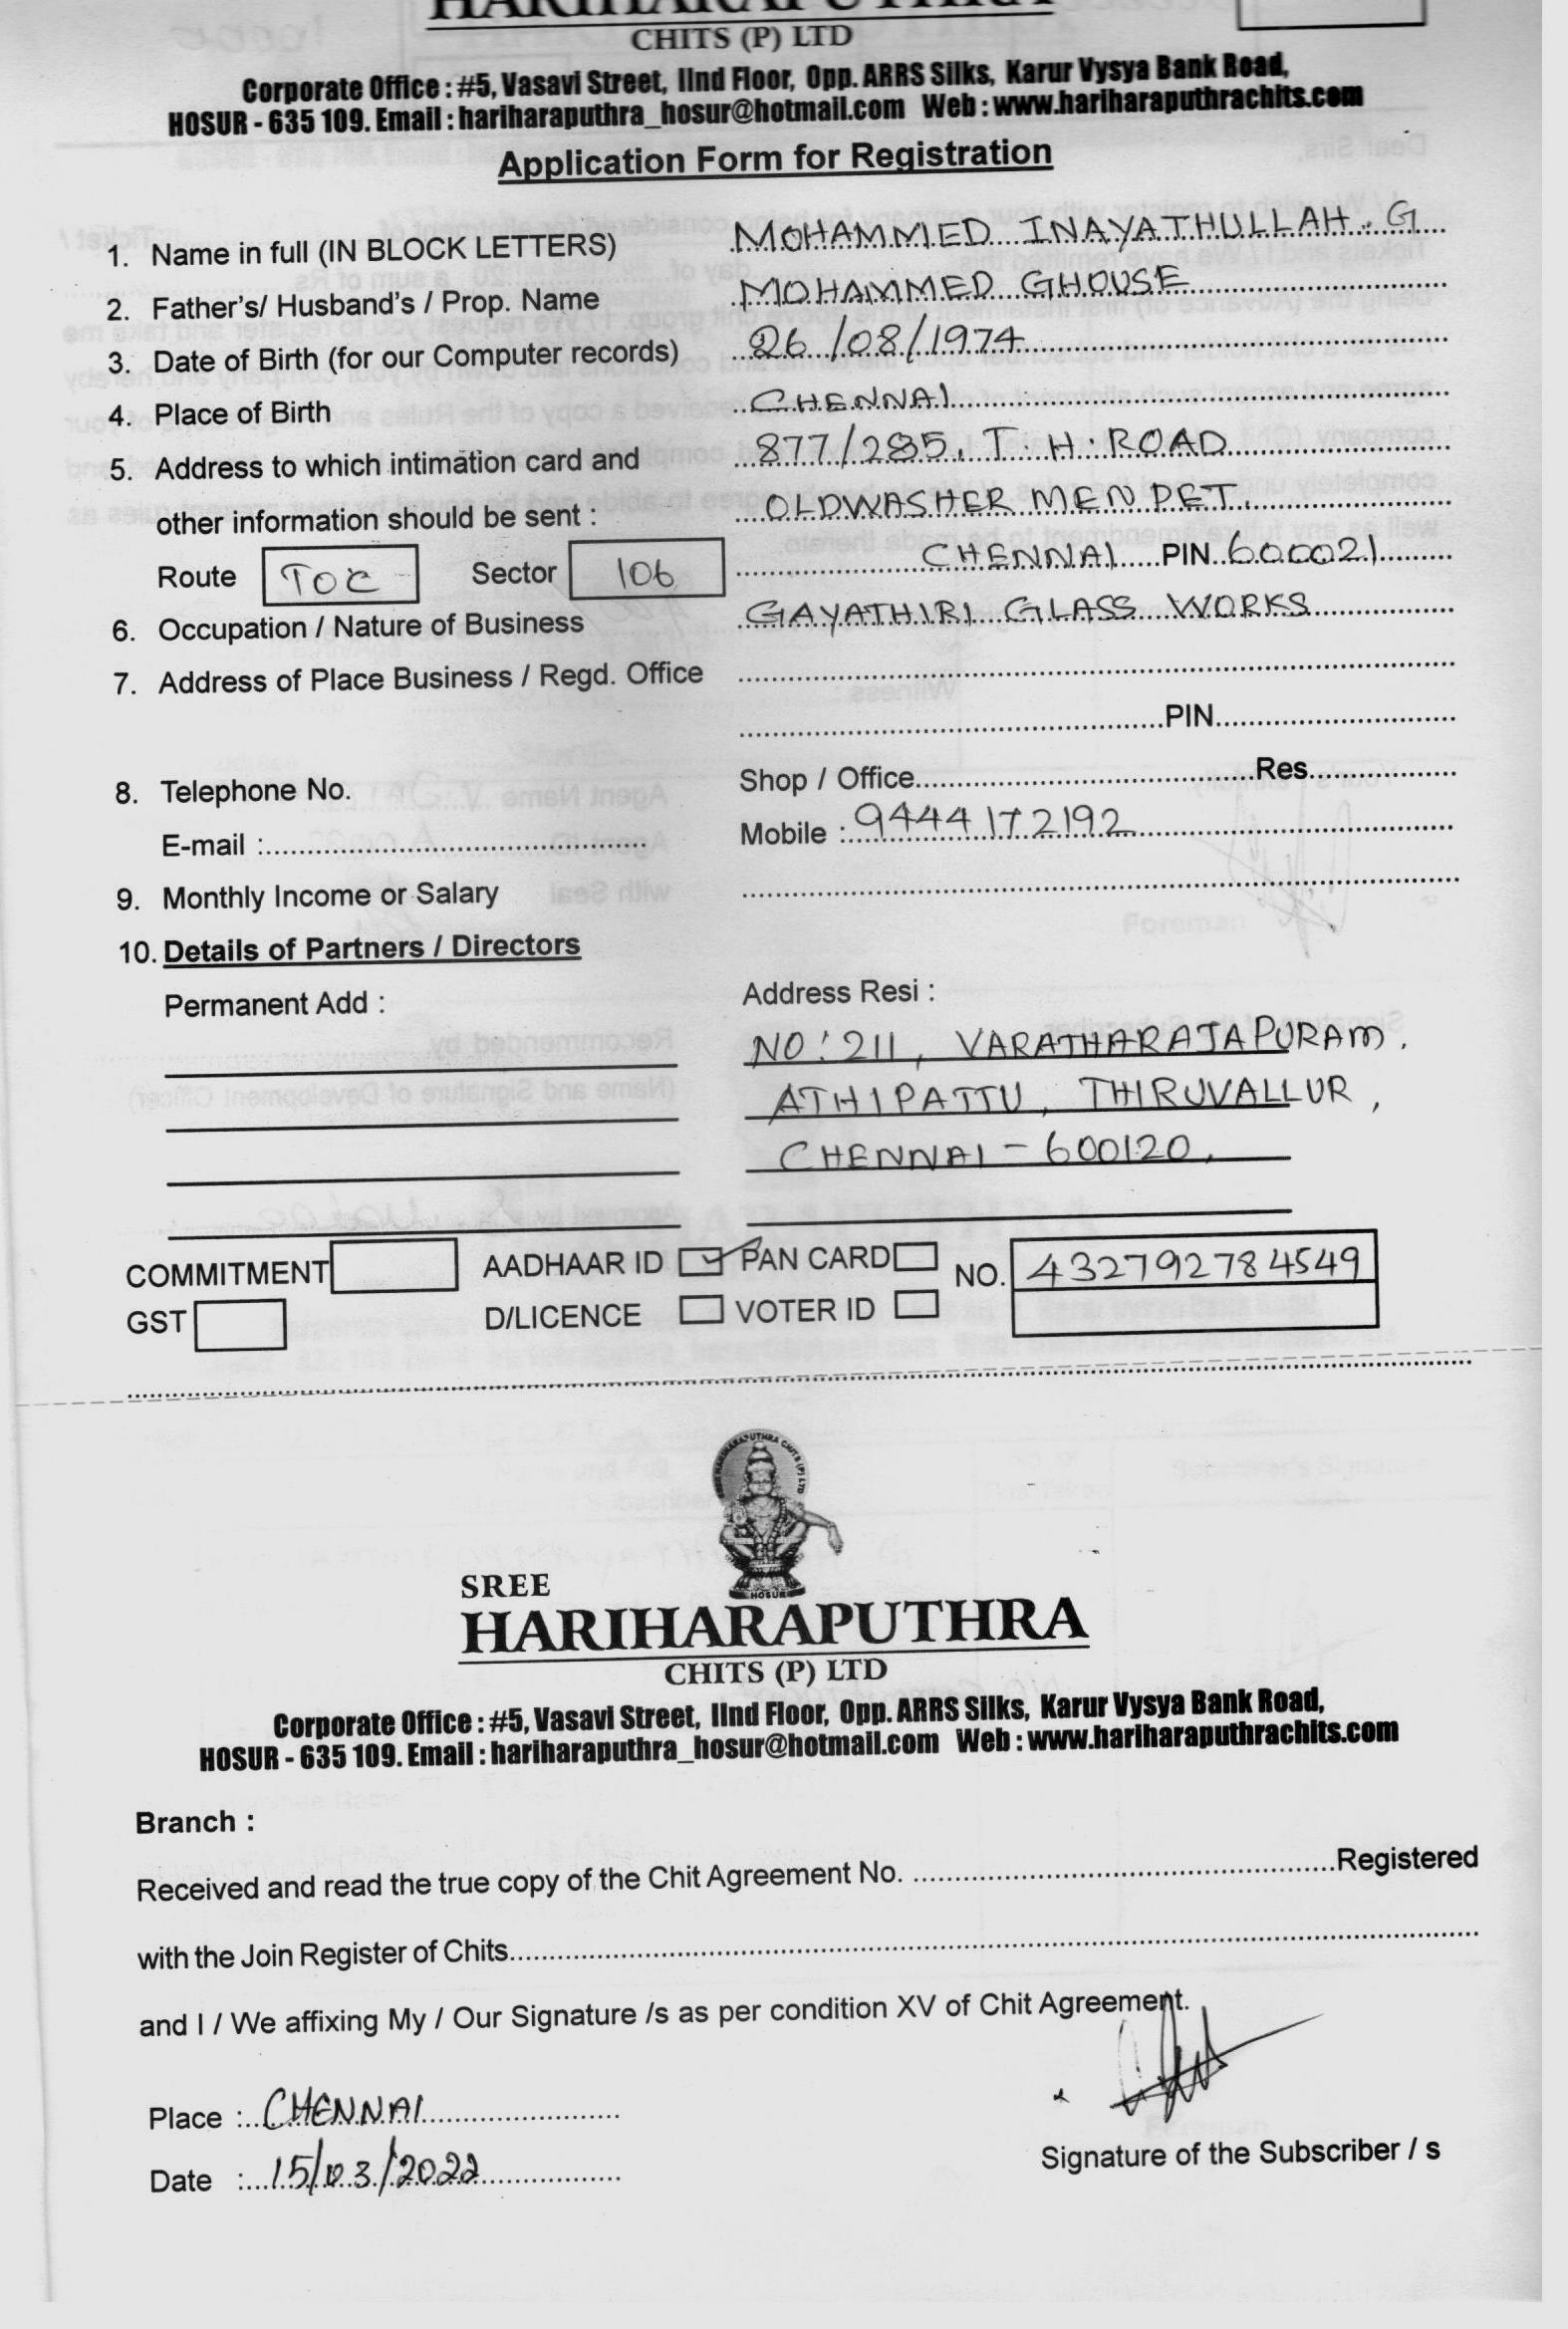 HARIHARAPUTHRA
CHITS (P) LTD
Corporate Office : #5, Vasavi Street, IInd Floor, Opp. ARRS Silks, Karur Vysya Bank Road,
HOSUR - 635 109. Email : hariharaputhra_hosur@hotmail.com Web : www.hariharaputhrachits.com
Application Form for Registration
1. Name in full (IN BLOCK LETTERS) MOHAMMED INAYATHULLAH . G
2. Father's/ Husband's / Prop. Name MOHAMMED GHOUSE
3. Date of Birth (for our Computer records) 26/08/1974
4. Place of Birth CHENNAI
5. Address to which intimation card and 877/285, T. H. ROAD
other information should be sent : OLDWASHER MEN PET.
Route TOC Sector 106 CHENNAI PIN 600021
6. Occupation / Nature of Business GAYATHIRI GLASS WORKS
7. Address of Place Business / Regd. Office
PIN
8. Telephone No. Shop / Office Res
E-mail : Mobile : 9444172192
9. Monthly Income or Salary
10. Details of Partners / Directors
Permanent Add : Address Resi :
NO: 211, VARATHARAJAPURAM.
ATHIPATTU, THIRUVALLUR,
CHENNAI - 600120.
COMMITMENT AADHAAR ID PAN CARD NO. 432792784549
GST D/LICENCE VOTER ID
SREE HARIHARAPUTHRA CHITS (P) LTD
HOSUR
SREE
HARIHARAPUTHRA
CHITS (P) LTD
Corporate Office : #5, Vasavi Street, IInd Floor, Opp. ARRS Silks, Karur Vysya Bank Road,
HOSUR - 635 109. Email : hariharaputhra_hosur@hotmail.com Web : www.hariharaputhrachits.com
Branch :
Received and read the true copy of the Chit Agreement No. Registered
with the Join Register of Chits
and I / We affixing My / Our Signature /s as per condition XV of Chit Agreement.
Place : CHENNAI
Date : 15/03/2022
Signature of the Subscriber / s